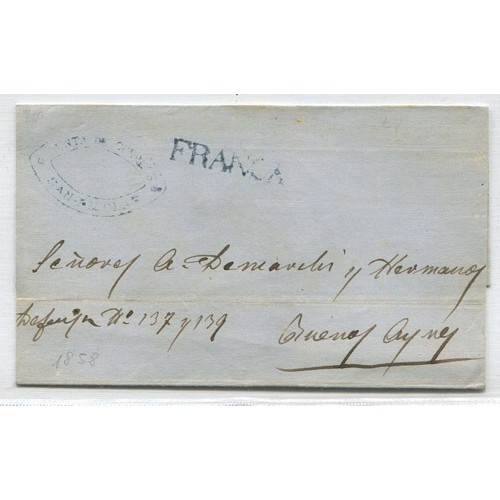 FRANCA
Señores A. Demarchi y Hermanos
Defensa No. 137 y 139
Buenos Ayres
1858